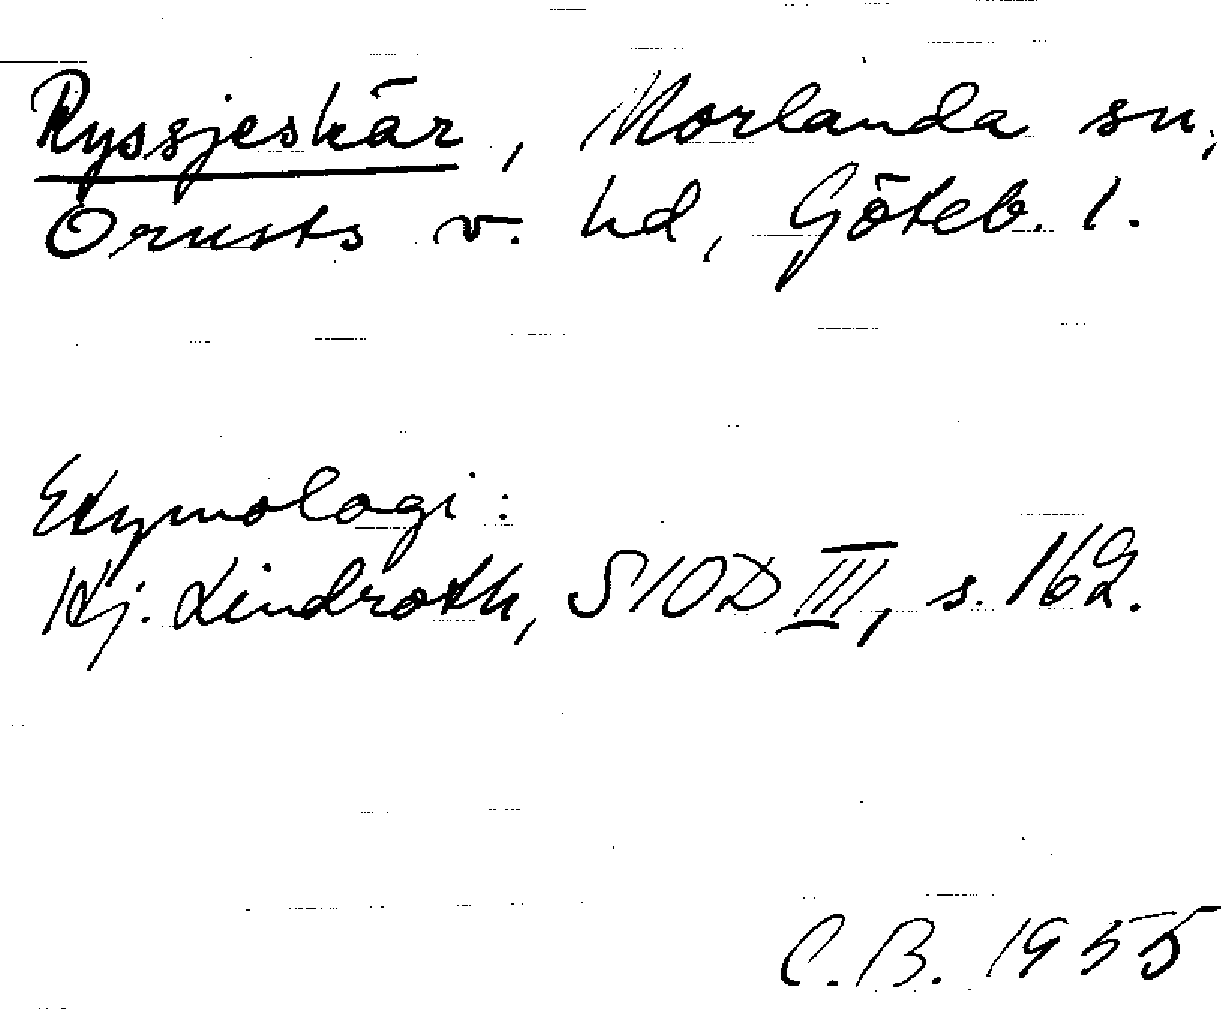 Ryssjeskär, Morlanda sn,
Orusts v. hd, Göteb. l.
Etymologi:
Hj. Lindroth, SIOD III, s. 162.
C.B. 1955